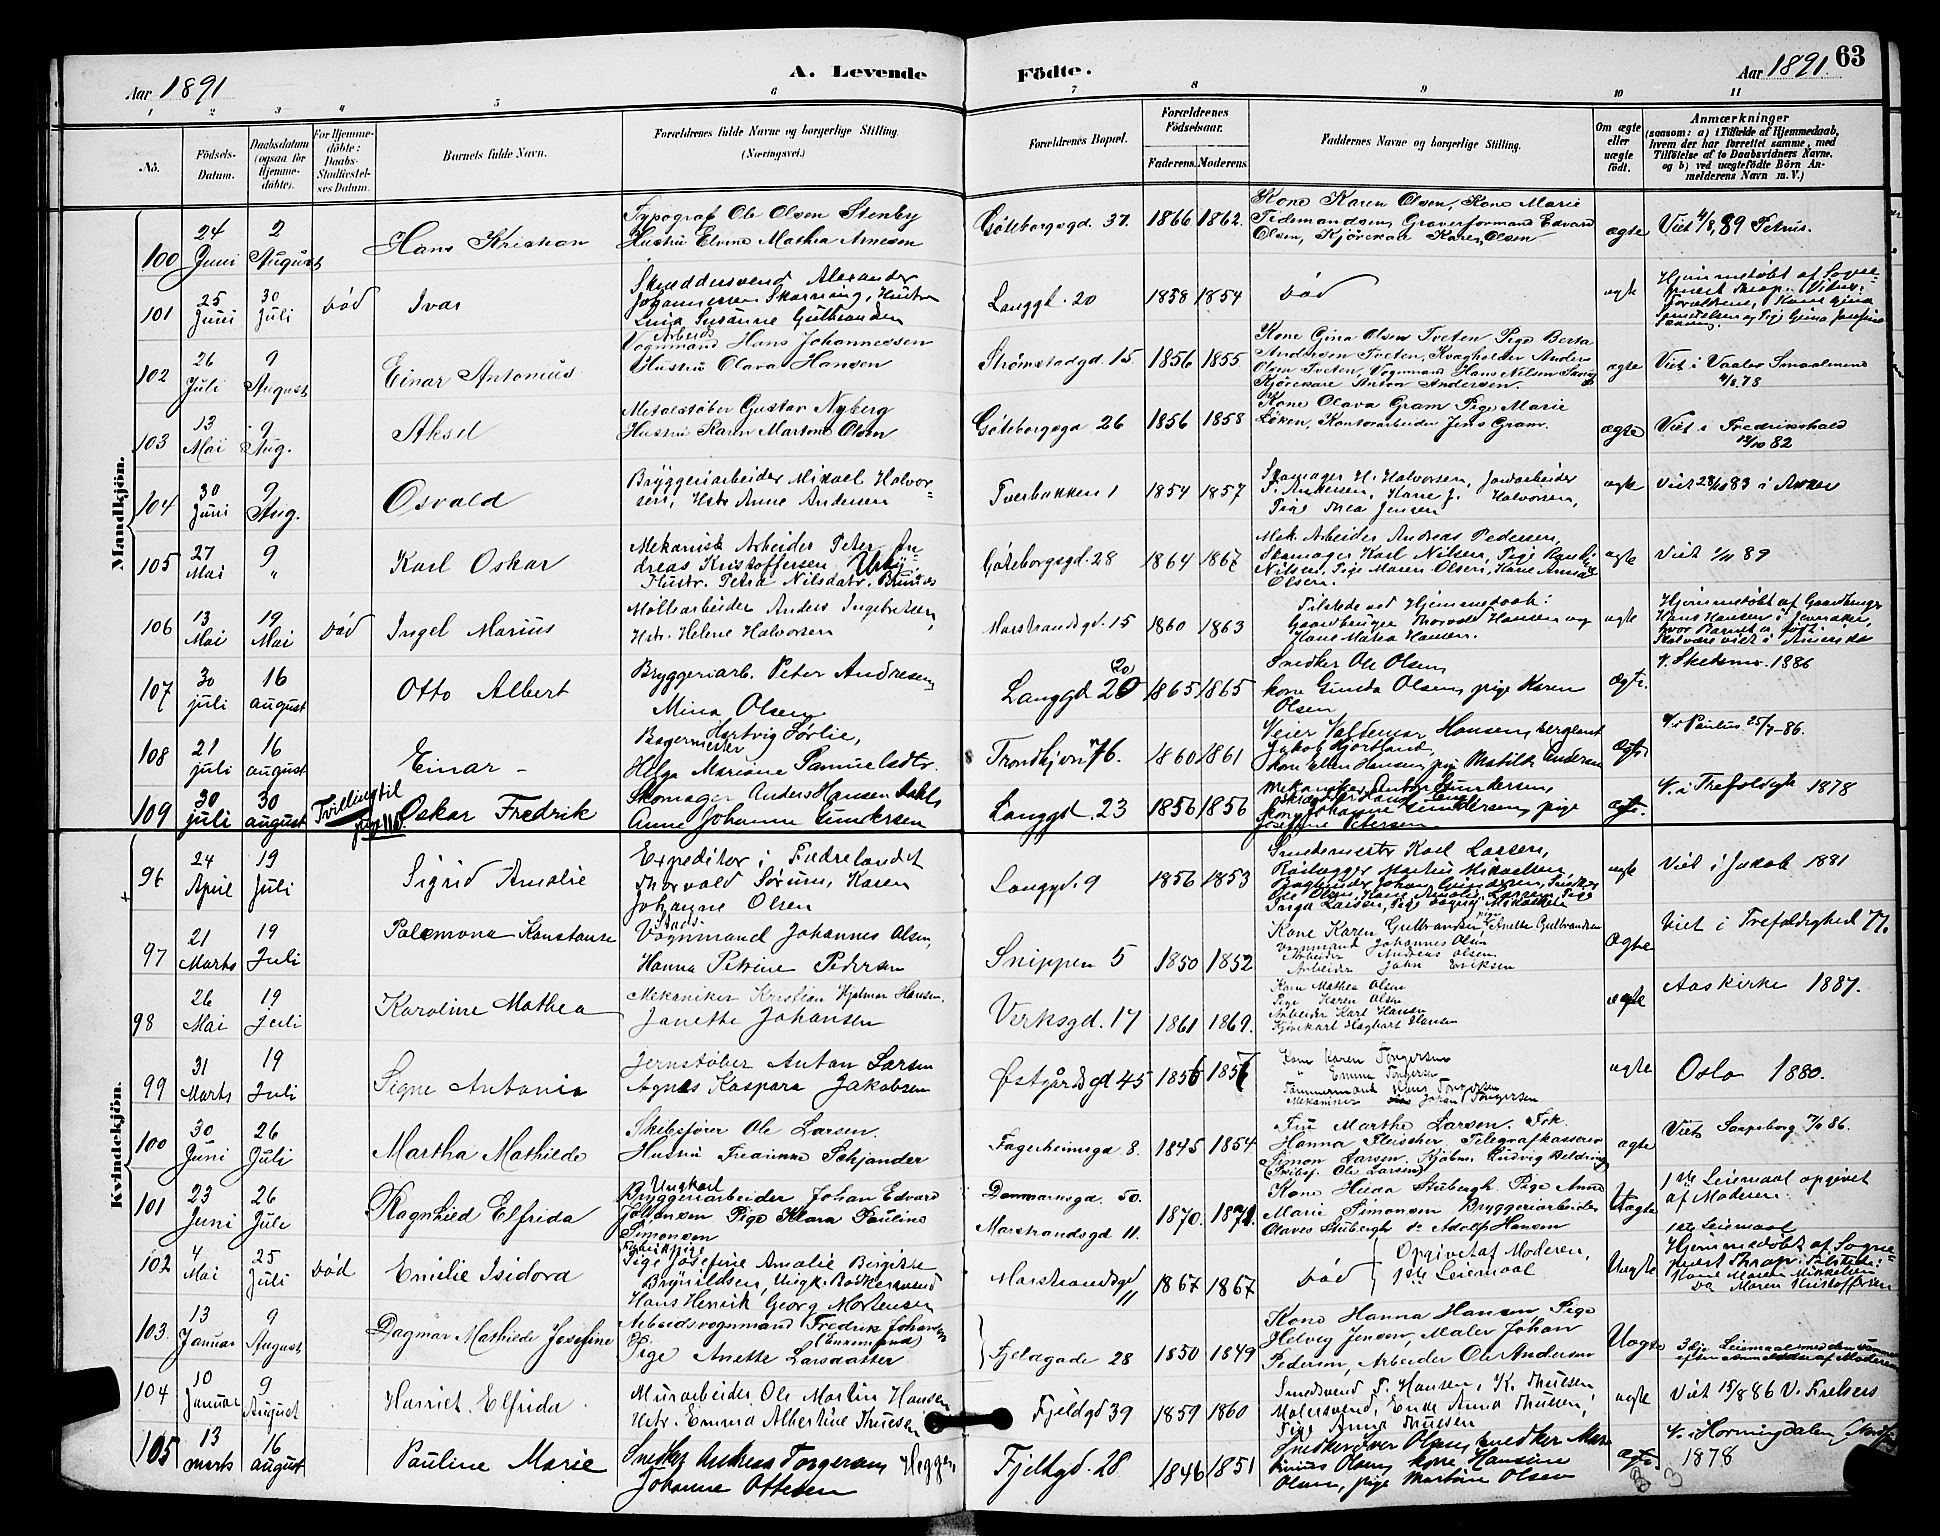 Aar 1891
A. Levende
Födte.
Aar 1891. 63
1 2 3 4 5 6 7 8 9 10 11
No.
Födsels-
Datum.
Daabsdatum
(ogsaa for
Hjemme-
döbte).
For Hjemme-
döbte:
Daabs-
Stadfæstel-
ses Datum.
Barnets fulde Navn.
Forældrenes fulde Navne og borgerlige Stilling.
(Næringsvei.)
Forældrenes Bopæl.
Forældrenes
Födselsaar.
Faderens. Moderens.
Faddernes Navne og borgerlige Stilling.
Om ægte
eller
uægte
födt.
Anmærkninger
(saasom: a) i Tilfælde af Hjemmedaab,
hvem der har forrettet samme, med
Tilföielse af to Daabsvidners Navne.
og b) ved uægtefödte Börn An-
melderens Navn m. V.)
Mandkjön.
100 24 Juni 2 August Hans Kristian
Typograf Ole Olsen Stenby
Hustru Elvine Mathea Arnesen
Göteborgsgd. 37. 1866 1862.
Kone Karen Olsen, Kone Marie
Tidemandsen, Graverformand Edvard
Olsen, Kjörekar Karen Olsen
ægte Viet 89 Petrus.
101 25 Juni 30 Juli död Ivar
Skræddersvend Alexander
Johannesen Skarning, Hustru
Lina Susanne Gulbrandsen
Langgd. 20 1858 1854 död ægte
Hjemmedøbt af Sogne-
102 26 Juli 9 August Einar Antonius
Arbeids
Vognmand Hans Johannessen
Hustru Olava Hansen
Strømstadgd. 15 1856 1855
Kone Gina Olsen Tveten Pige Berta
Andersen Tveten, Kvægholder Anders
Olsen Tveten, Vognmand Hans Nilsen
Kjörekare Anton Andersen.
ægte Viet i Vaaler Smaalenene
78
103 13 Mai 9 Aug. Aksel
Metalstøber Gustav Nyberg
Hustru Karen Martone Olsen
Göteborgsgd 26 1856 1858
Kone Olava Gram Pige Marie
Løken, Kontorarbeider Jens Gram.
ægte Viet i Fredrikshald
12/10 82
104 30 Juni 9 Aug. Osvald
Bryggeriarbeider Mikael Halvor-
sen, Hstr. Anne Andersen
Tverbakken 1 1854 1857
Skomager H. Halvorsen, Jordarbeider
T. Andersen, Kone J. Halvorsen,
Pige Thea Jensen
ægte Viet 83 i Asker
105 27 Mai 9 " Karl Oskar
Mekanisk Arbeider Peter An-
dreas Kristoffersen
Hustr. Petra Nilsdatr.
Göteborgsgd. 28 1864 1867
Mek. Arbeider Andreas Pedersen,
Skomager Karl Nilsen, Pige
Nilsen, Pige Maren Olsen, Kone Anna
Olsen.
ægte Viet 89
106 13 Mai 19 Mai död Ingel Marius
Møllearbeider Anders Ingebretsen,
Hstr. Helene Halvorsen
Marstrandsgd. 15 1860 1863
Tilstede ved Hjemmedaab:
Gaardbruger Thorvald Hansen og
Kone Mathea Hansen.
ægte Hjemmedøbt af Gaardbruger
Hans Hansen i
hvor Barnet er født.
107 30 juli 16 august Otto Albert
Bryggeriarb. Peter Andresen,
Mina Olsen
20
Langgd 20 1865 1865
Snedker Ole Olsen,
kone Gunda Olsen, pige Karen
Olsen
Ægte. V. Skedsmo. 1886
108 21 juli 16 august Einar -
Bagermester Hartvig Sørlie,
Helga Mariane Samuelsdtr.
Trondhjemsv 76. 1860 1861
Veier Valdemar Hansen, sergeant
Jakob Hjortland,
kone Ellen Hansen, pige Matilde Andersen
Ægte V. i Paulus 25/7-86.
109 30 juli 30 august Tvilling til
pige 110. Oskar Fredrik
Skomager Anders Hansen Dahl,
Anne Johanne Gundersen
Langgd. 23 1856 1856
Mekaniker Anton Gundersen,
kone Johanne Gundersen, pige
Josefine Petersen
ægte. V. i Trefoldigh 1878
Kvindekjön.
+ 96 24 April 19 Juli Sigrid Amalie
Expeditør i Fædrelandet
Thorvald Sørum, Karen
Johanne Olsen
Langgd. 9 1856 1853
Smedemester Karl Larsen,
Rørlægger Martin Mikaelsen,
ægte Viet i Jakob 1881
97 21 Marts 19 Juli Palemona Konstanse
Stads
Vognmand Johannes Olsen,
Hanna Petrine Pedersen
Snippen 5 1850 1852
Kone Karen Gulbrandsen, Pige Anette Gulbrandsen
Vognmand Johannes Olsen
Arbeider Andreas Olsen.
Arbeider John Eriksen
Ægte Viet i Trefoldighed 77.
98 26 Mai 19 Juli Karoline Mathea
Mekaniker Kristian Hjalmar Hansen.
Janette Johansen
Verksgd. 17 1861 1869.
Kone Mathea Olsen
Pige Karen Olsen
Arbeider Karl Hansen
Kjørekarl Hagbart Hansen
ægte Aaskirke 1887.
99 31 Marts 19 Juli Signe Antonia
Jernstøber Anton Larsen
Agnes Kaspara Jakobsen
Østgårdsgd 45 1856 1857
Kone Karen Torgersen
" Emma Torgersen
Tømmermand Hans Torgersen
Mekaniker Johan Torgersen
ægte Oslo 1880.
100 30 Juni 26 Juli Martha Mathilde
Skibsfører Ole Larsen.
Hustru Fredrikke Schjander
Fagerheimsgd 8. 1845 1854
Fru Marthe Larsen. Frk.
Hanna Fleischer. Telegrafkasserer
Simon Larsen. Kjøbm. Ludvig Beldring
(Skibsf. Ole Larsen)
ægte Viet Sarpsborg 86.
101 23 Juni 26 Juli Ragnhild Elfrida
Ungkarl
Bryggeriarbeider Johan Edvard
Johansen Pige Klara Pauline
Simonsen
Danmarksgd 50.
Marstrandsgd 11. 1870. 1871.
Kone Hilda Stubergh Pige Anna
Marie Simonsen Bryggeriarbeider
Olaves Stubergh do Adolf Hansen
Uægte 1ste Leiemaal opgivet
af Moderen.
102 4 Mai 25 Juli död Emilie Isidora
Fabrikpige
Pige Josefine Amalie Birgitte
Brynildsen, Ungk.
Hans Henrik Georg Mortensen
Marstrandsgd 11 1867 1867 död
Opgivet af Moderen,
1ste Leiemaal
Uægte 1ste Leiemaal
Hjemmedøbt af Sogne-
præst Thrap. Tilstede:
Kone Maren Mikkelsen
do Maren Kristoffersen
103. 13 Januar 9 August Dagmar Mathilde Josefine
Arbeidsvognmand Fredrik Johansen
(Enkemand)
Pige Anette Larsdatter
Fjeldgade 28 1850 1849
Kone Hanna Hansen, Pige
Helvig Jensen, Maler Johan
Pedersen, Arbeider Ole Andersen
Uægte 3die Leiemaal med den samme
efter Anmeldelse af Moderen
104 10 Januar 9 August Harriet Elfrida.
Murarbeider Ole Martin Hansen
Hstr. Emma Albertine Thulesen
Fjeldgd 39 1859 1860
Smedsvend T. Hansen, K. Thulsen,
Malersvend, Enke Anna Thulsen,
Pige Anna Thulsen
ægte Viet 15/8 86 V. Frelsers
105 13 marts 16 august Pauline Marie
Snedker Andreas Torgersen, Heggen
Johanne Ottesen
Fjeldgd. 28 1846 1851
Snedker Iver Olsen, snedker Mari-
nius Olsen, kone Hansine
Olsen, pige Martine Olsen
ægte. V. i Horningdalen, Nordfj.
1878
8 3